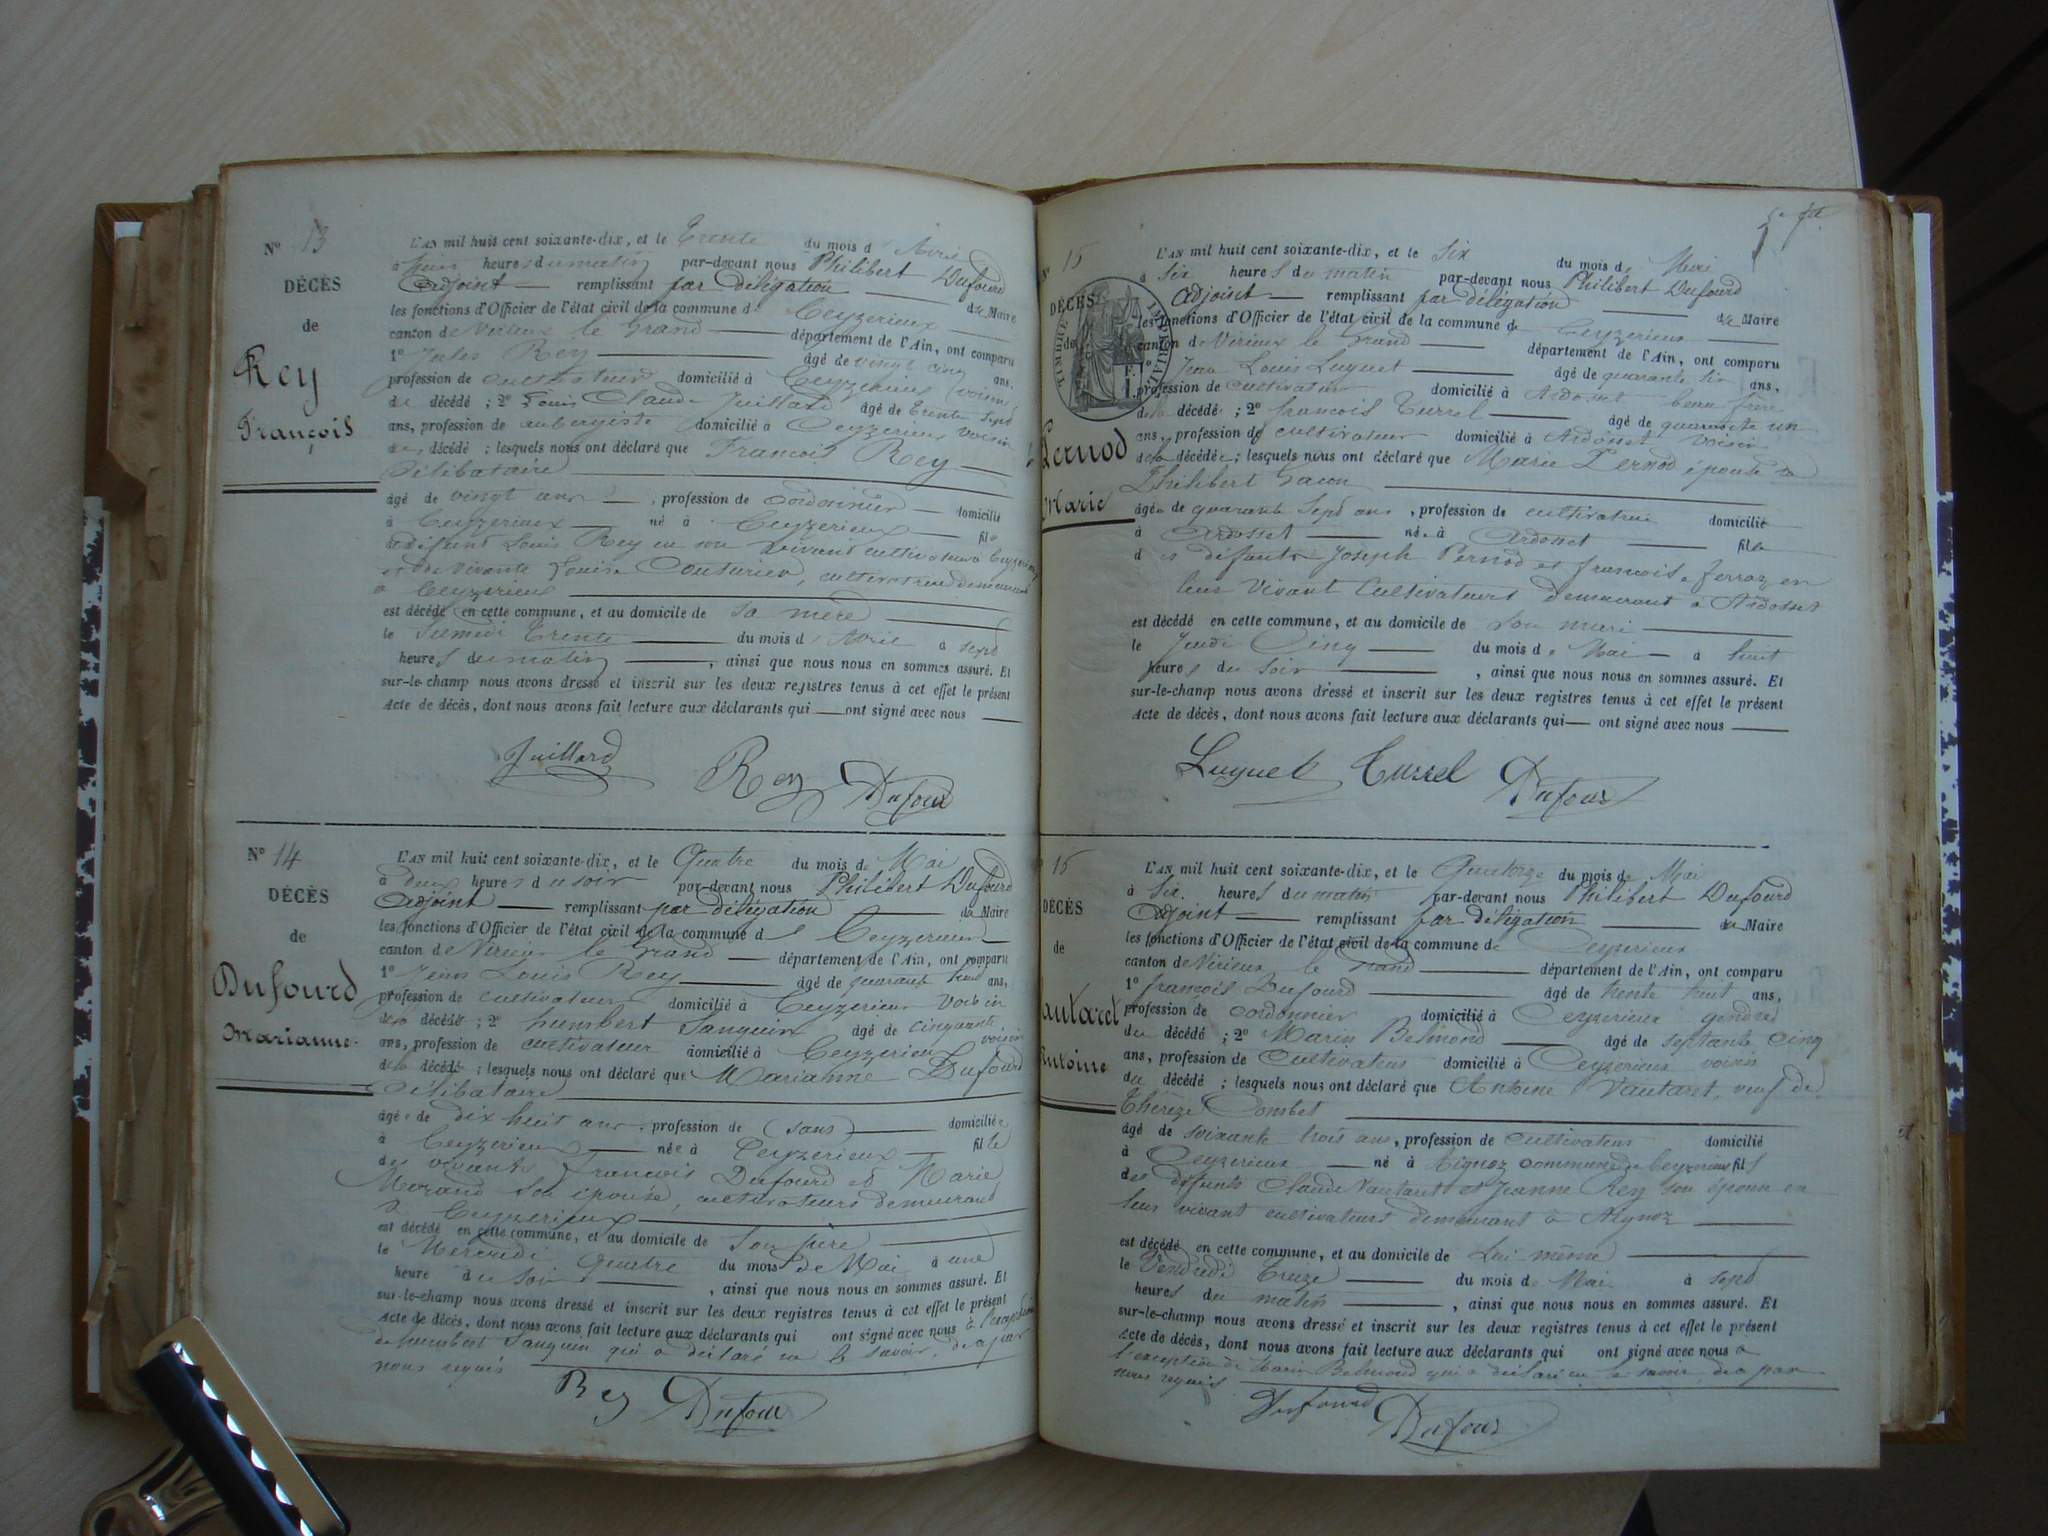 N° 13
DÉCÈS
de
Rey
François
L'AN mil huit cent soixante-dix, et le Trente du mois d'Avril
à huit heures du matin par-devant nous Philibert Dufourd
Adjoint remplissant par délégation du Maire
les fonctions d'Officier de l'état civil de la commune de Ceyzerieux
canton de Virieux le Grand département de l'Ain, ont comparu
1° Jules Rey âgé de vingt cinq ans,
profession de cultivateur domicilié à Ceyzerieux voisin
du décédé ; 2° Louis Claude Juillard âgé de trente sept
ans, profession de aubergiste domicilié à Ceyzerieux voisin
du décédé ; lesquels nous ont déclaré que François Rey
Célibataire
âgé de vingt ans, profession de cordonnier domicilié
à Ceyzerieux né à Ceyzerieux fils
de défunt Louis Rey en son vivant cultivateur à Ceyzerieux
et de vivante Louise Couturier, cultivatrice demeurant
à Ceyzerieux
est décédé en cette commune, et au domicile de sa mère
le Samedi Trente du mois d'Avril à sept
heures du matin, ainsi que nous nous en sommes assuré. Et
sur-le-champ nous avons dressé et inscrit sur les deux registres tenus à cet effet le présent
Acte de décès, dont nous avons fait lecture aux déclarants qui ont signé avec nous
Juillard Rey Dufour
N° 14
DÉCÈS
de
Dufourd
Marianne
L'AN mil huit cent soixante-dix, et le Quatre du mois de Mai
à deux heures du soir par-devant nous Philibert Dufourd
Adjoint remplissant par délégation du Maire
les fonctions d'Officier de l'état civil de la commune de Ceyzerieux
canton de Virieux le Grand département de l'Ain, ont comparu
1° Jean Louis Rey âgé de quarante huit ans,
profession de cultivateur domicilié à Ceyzerieux voisin
de la décédé ; 2° humbert Sanguin âgé de cinquante
ans, profession de cultivateur domicilié à Ceyzerieux voisin
de la décédé ; lesquels nous ont déclaré que Marianne Dufourd
Célibataire
âgée de dix huit ans, profession de (sans) domiciliée
à Ceyzerieux née à Ceyzerieux fille
des vivants françois Dufourd et Marie
Morand son épouse, cultivateurs demeurant
à Ceyzerieux
est décédé en cette commune, et au domicile de son père
le Mercredi Quatre du mois de Mai à une
heure du soir, ainsi que nous nous en sommes assuré. Et
sur-le-champ nous avons dressé et inscrit sur les deux registres tenus à cet effet le présent
Acte de décès, dont nous avons fait lecture aux déclarants qui ont signé avec nous à l'exception
de humbert Sanguin qui a déclaré ne le savoir, de a par
nous requis
Rey Dufour
5e ft
N° 15
DÉCÈS
de
TIMBRE IMPÉRIAL
Pernod
Marie
L'AN mil huit cent soixante-dix, et le six du mois de Mai
à six heures du matin par-devant nous Philibert Dufourd
Adjoint remplissant par délégation du Maire
les fonctions d'Officier de l'état civil de la commune de Ceyzerieux
canton de Virieux le Grand département de l'Ain, ont comparu
1° Jean Louis Luquet âgé de quarante six ans,
profession de cultivateur domicilié à Ardosset beau frère
de la décédé ; 2° françois Turrel âgé de quarante un
ans, profession de cultivateur domicilié à Ardosset voisin
de la décédée ; lesquels nous ont déclaré que Marie Pernod épouse de
Philibert
âgée de quarante sept ans, profession de cultivatrice domicilié
à Ardosset née à Ardosset fille
des défunts Joseph Pernod et françoise ferroz en
leur vivant cultivateurs demeurant à Ardosset
est décédé en cette commune, et au domicile de son mari
le Jeudi Cinq du mois de Mai à huit
heures du soir, ainsi que nous nous en sommes assuré. Et
sur-le-champ nous avons dressé et inscrit sur les deux registres tenus à cet effet le présent
Acte de décès, dont nous avons fait lecture aux déclarants qui ont signé avec nous
Luquet Turrel Dufour
15
DÉCÈS
de
autaret
Antoine
L'AN mil huit cent soixante-dix, et le Quatorze du mois de Mai
à six heures du matin par-devant nous Philibert Dufourd
Adjoint remplissant par délégation du Maire
les fonctions d'Officier de l'état civil de la commune de Ceyzerieux
canton de Virieux le Grand département de l'Ain, ont comparu
1° françois Dufourd âgé de trente huit ans,
profession de cordonnier domicilié à Ceyzerieux gendre
du décédé ; 2° Marin Belmond âgé de septante cinq
ans, profession de cultivateur domicilié à Ceyzerieux voisin
du décédé ; lesquels nous ont déclaré que Antoine Vautaret, veuf de
Thérèze Combet
âgé de soixante trois ans, profession de cultivateur domicilié
à Ceyzerieux né à Aignoz commune de Ceyzerieux fils
des défunts Claude Vautaret et Jeanne Rey son épouse en
leur vivant cultivateurs demeurant à Aignoz
est décédé en cette commune, et au domicile de lui même
le Vendredi Treize du mois de Mai à sept
heures du matin, ainsi que nous nous en sommes assuré. Et
sur-le-champ nous avons dressé et inscrit sur les deux registres tenus à cet effet le présent
Acte de décès, dont nous avons fait lecture aux déclarants qui ont signé avec nous à
l'exception de Marin Belmond qui a déclaré ne le savoir de a par
nous requis
Dufourd Dufour